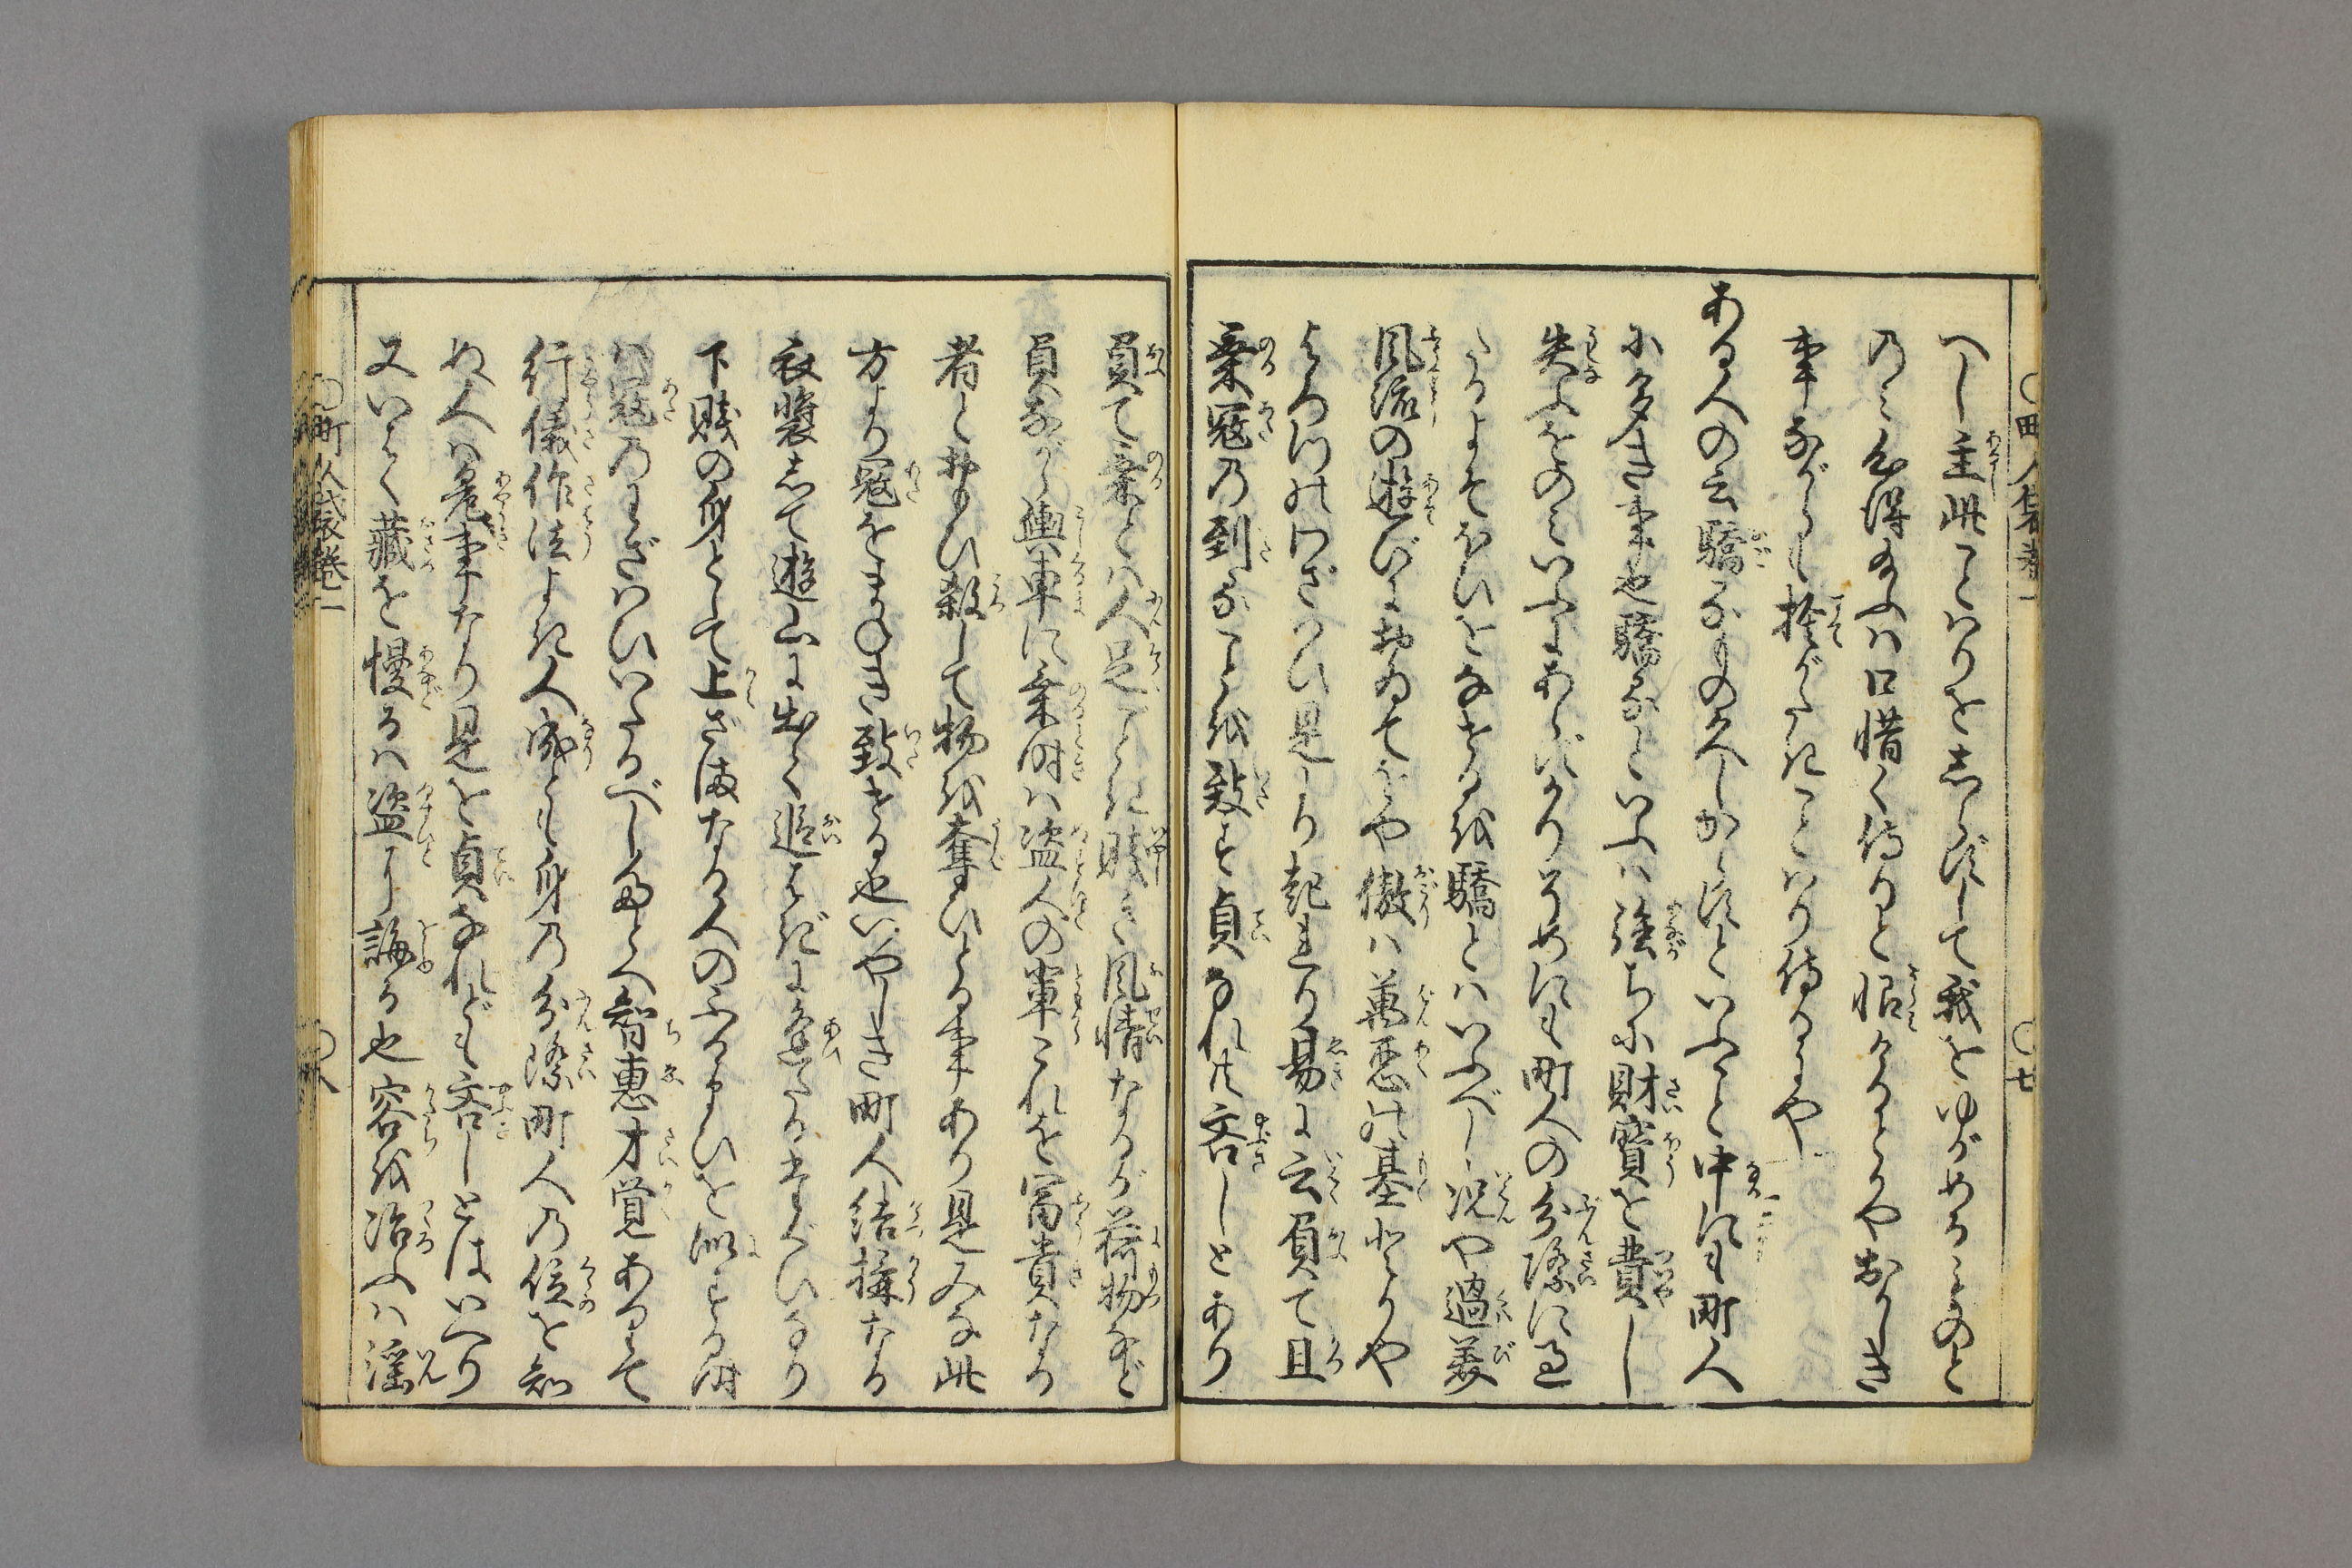 町人袋巻一
七
へし主此ことはりをしらずして我をゆがめるものと
のみ心得給ふは口惜く侍ると
事ながらも捨がたきことはり侍るにや
ある人の云驕るもの久しからずといふこと中にも町人
に多き事也驕るといふは強ちに財寳を費し
失ふをのみいふにあらずかりそめにも町人の分際に過
たるよそほひをなせるを驕とはいふべし況や過美
風流の遊びにおゐてをや傲は萬悪の基とかや
よろづのわざはひ是より起れり易に云負て且
乗寇の到ることを致す貞なれ共吝しとあり
負て乗とは人足ごとき賤き風情なるが荷物など
負ながら輿車に乗時は盗人の輩これを冨貴なる
者とおもひ殺して物を奪ひとる事あり是みな此
方より寇をまねき致せる也いやしき町人結搆なる
衣裳して遊山に出て追はぎに逢たるたぐひなり
下賎の身として上ざまなる人のふるまひを似する時
は寇のわざはひいたるべしたとへ智恵才覚ありて
行儀作法よき人成とも身の分際町人の位を知
ぬ人は危事なり是を貞なれども吝しとはいへり
又いはく蔵を慢るは盗に誨る也容を冶ふは淫
町人袋巻一
八